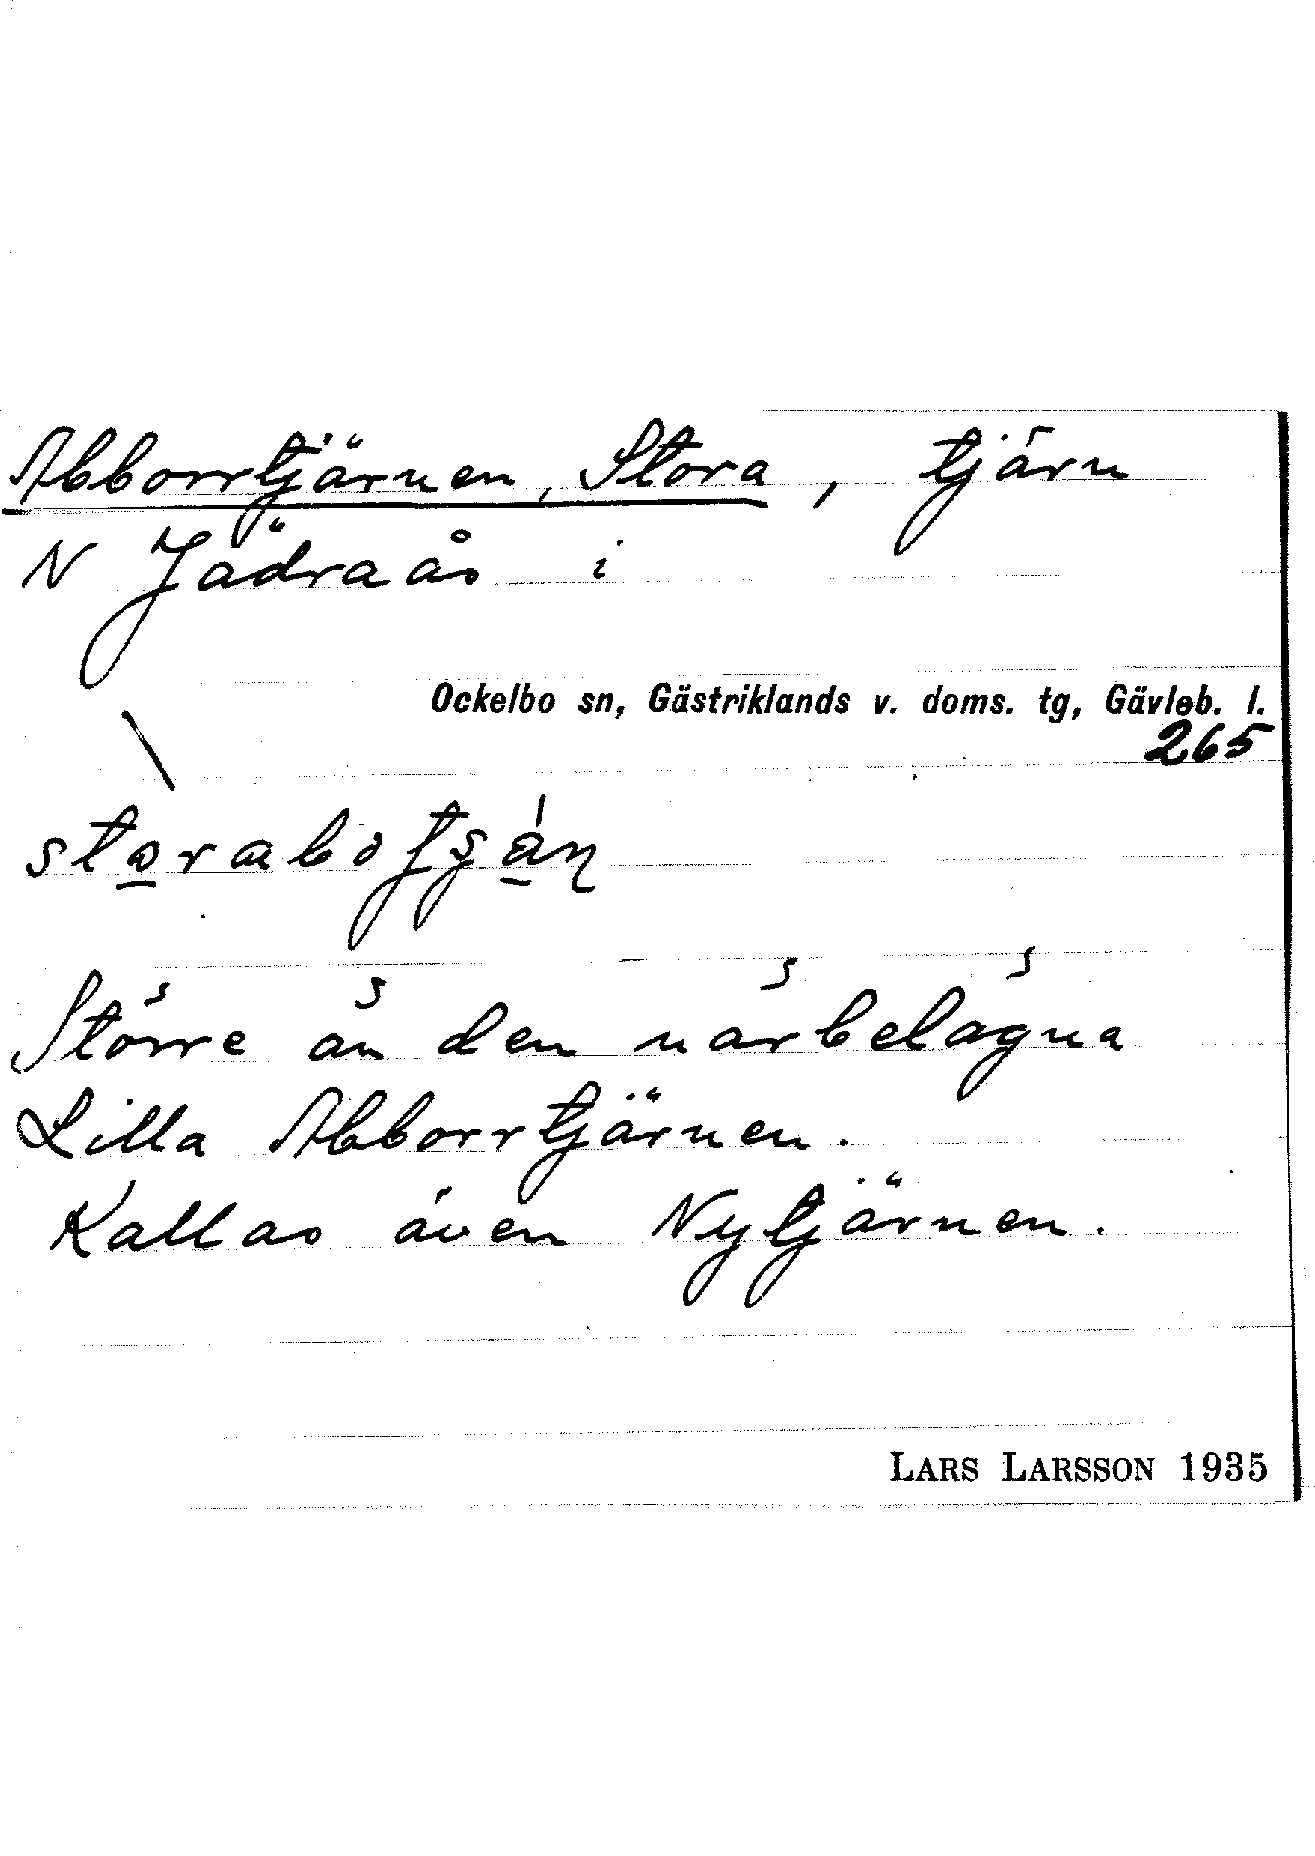 Abborrtjärnen, Stora, tjärn
N Jädraås i
Ockelbo sn, Gästriklands v. doms. tg, Gävleb. l.
265
Större än den närbelägna
Lilla Abborrtjärnen.
Kallas även Nytjärnen.
LARS LARSSON 1935